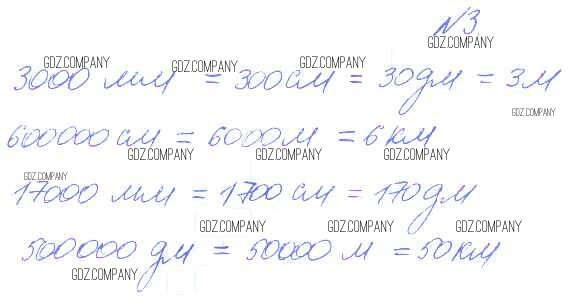 №3
GDZ.COMPANY
GDZ.COMPANY GDZ.COMPANY GDZ.COMPANY
3000 мм = 300 см = 30 дм = 3 м
GDZ.COMPANY
600000 см = 6000 м = 6 км
GDZ.COMPANY GDZ.COMPANY GDZ.COMPANY
GDZ.COMPANY
17000 мм = 1700 см = 170 дм
GDZ.COMPANY GDZ.COMPANY GDZ.COMPANY
500000 дм = 50000 м = 50 км
GDZ.COMPANY